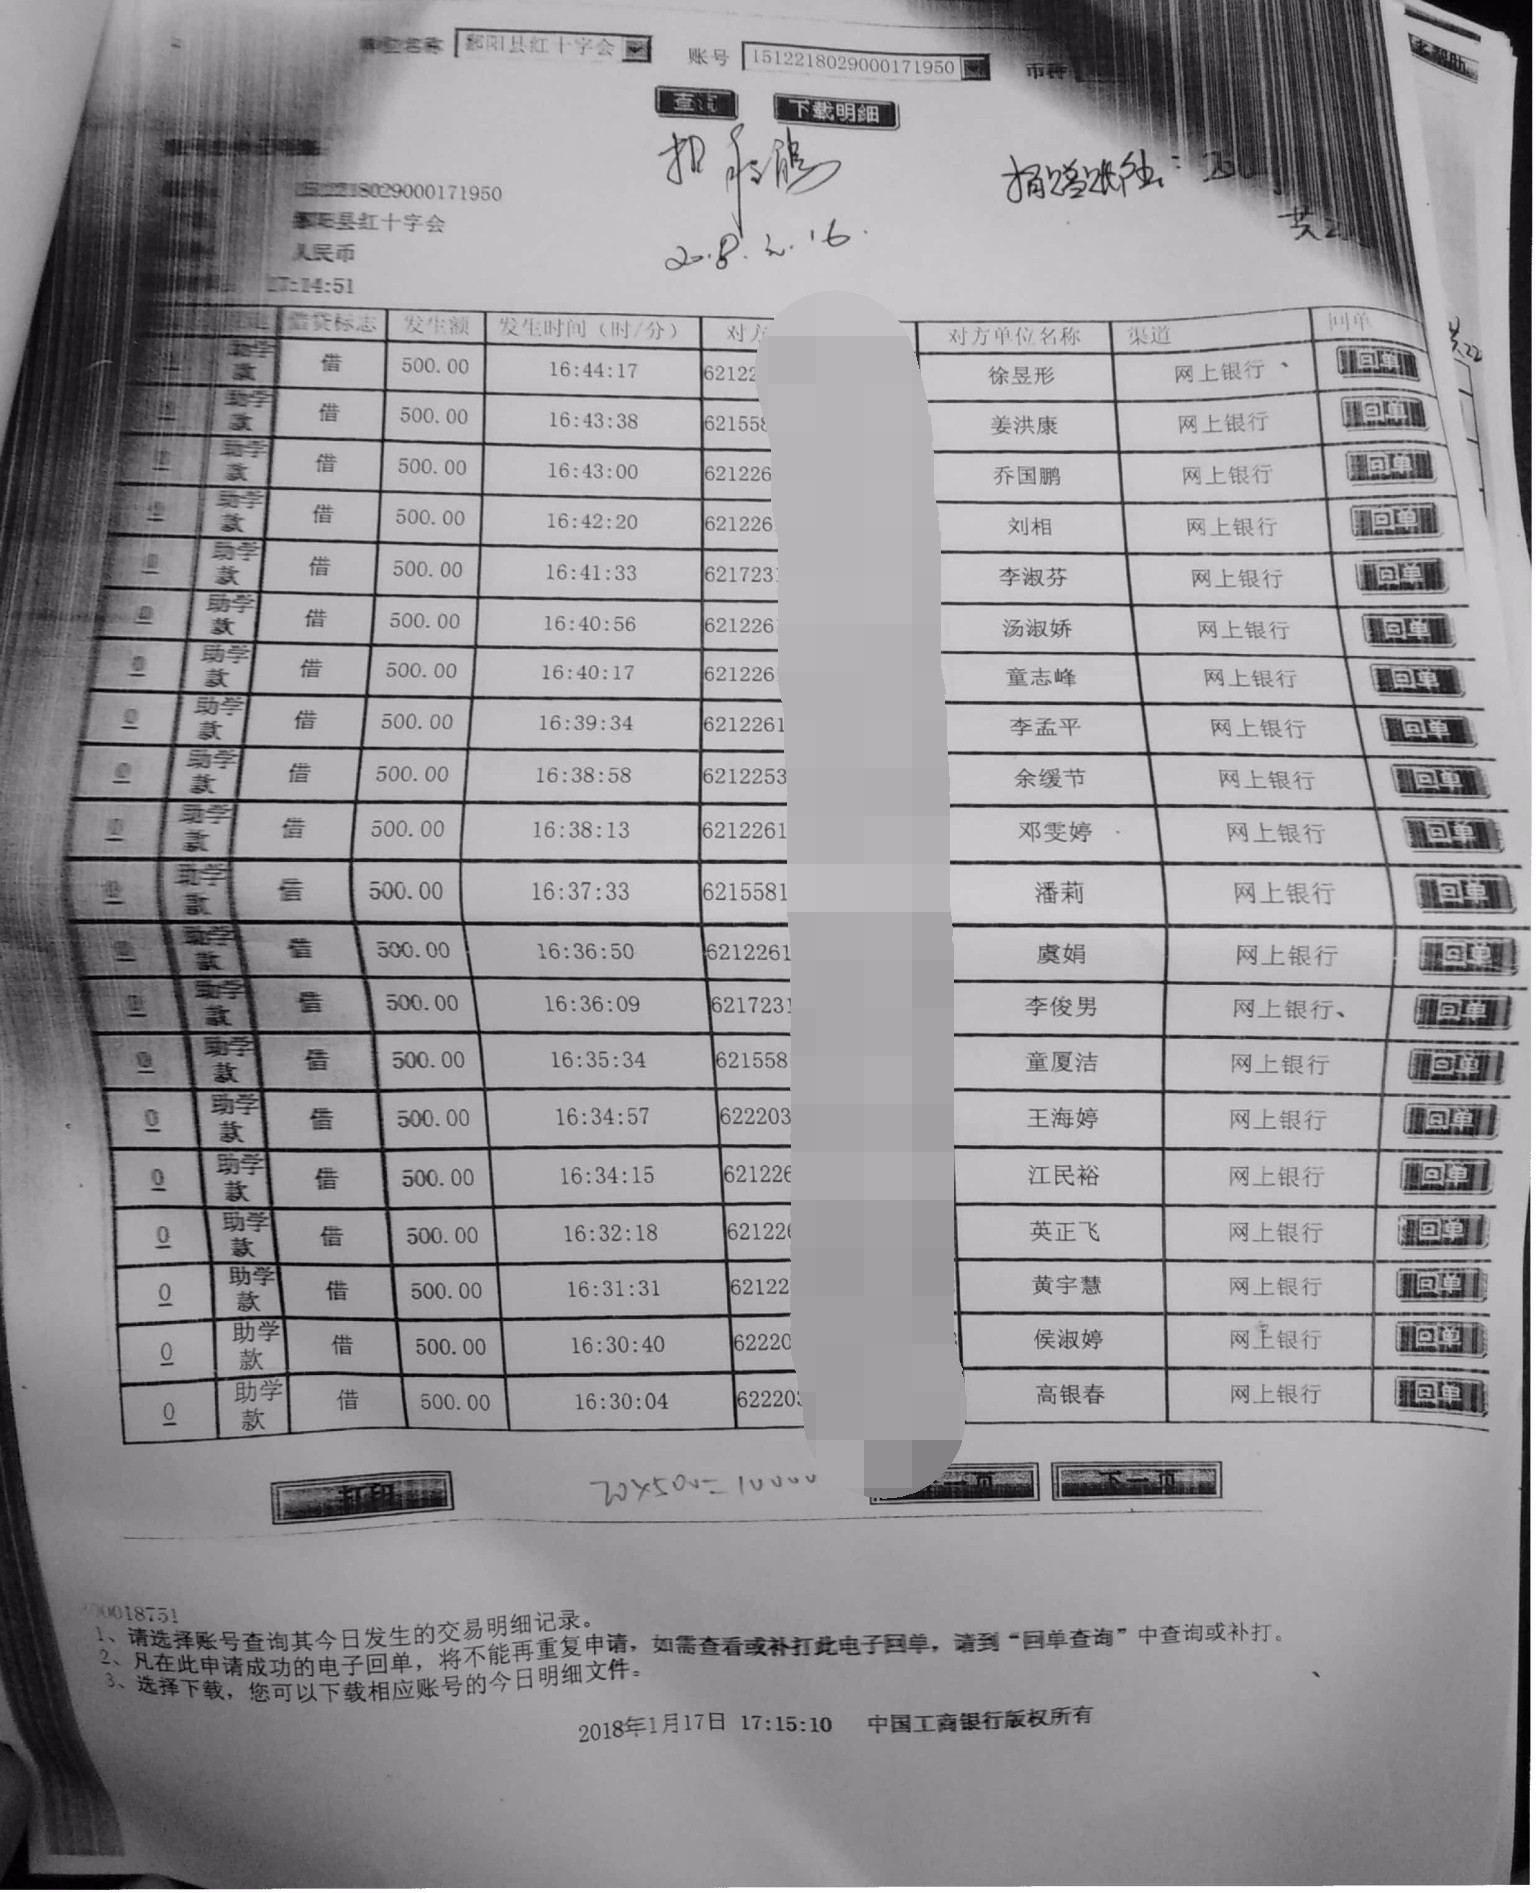 单位名称 鄱阳县红十字会 账号 1512218029000171950
查询 下载明细
2018.2.16.
1512218029000171950
鄱阳县红十字会
人民币
17:14:51
借贷标志 发生额 发生时间（时/分） 对方 对方单位名称 渠道 回单
助学款 借 500.00 16:44:17 62122 徐昱形 网上银行 回单
0 助学款 借 500.00 16:43:38 621558 姜洪康 网上银行 回单
0 助学款 借 500.00 16:43:00 621226 乔国鹏 网上银行 回单
0 助学款 借 500.00 16:42:20 621226 刘相 网上银行 回单
0 助学款 借 500.00 16:41:33 621723 李淑芬 网上银行 回单
0 助学款 借 500.00 16:40:56 621226 汤淑娇 网上银行 回单
0 助学款 借 500.00 16:40:17 621226 童志峰 网上银行 回单
0 助学款 借 500.00 16:39:34 6212261 李孟平 网上银行 回单
0 助学款 借 500.00 16:38:58 6212253 余缓节 网上银行 回单
0 助学款 借 500.00 16:38:13 6212261 邓雯婷 网上银行 回单
0 助学款 借 500.00 16:37:33 6215581 潘莉 网上银行 回单
0 助学款 借 500.00 16:36:50 6212261 虞娟 网上银行 回单
0 助学款 借 500.00 16:36:09 6217231 李俊男 网上银行 回单
0 助学款 借 500.00 16:35:34 621558 童厦洁 网上银行 回单
0 助学款 借 500.00 16:34:57 622203 王海婷 网上银行 回单
0 助学款 借 500.00 16:34:15 621226 江民裕 网上银行 回单
0 助学款 借 500.00 16:32:18 62122 英正飞 网上银行 回单
0 助学款 借 500.00 16:31:31 62122 黄宇慧 网上银行 回单
0 助学款 借 500.00 16:30:40 62220 侯淑婷 网上银行 回单
0 助学款 借 500.00 16:30:04 62220 高银春 网上银行 回单
打印 20×500=10000 一页 下一页
0018751
1、请选择账号查询其今日发生的交易明细记录。
2、凡在此申请成功的电子回单，将不能再重复申请，如需查看或补打此电子回单，请到“回单查询”中查询或补打。
3、选择下载，您可以下载相应账号的今日明细文件。
2018年1月17日 17:15:10 中国工商银行版权所有